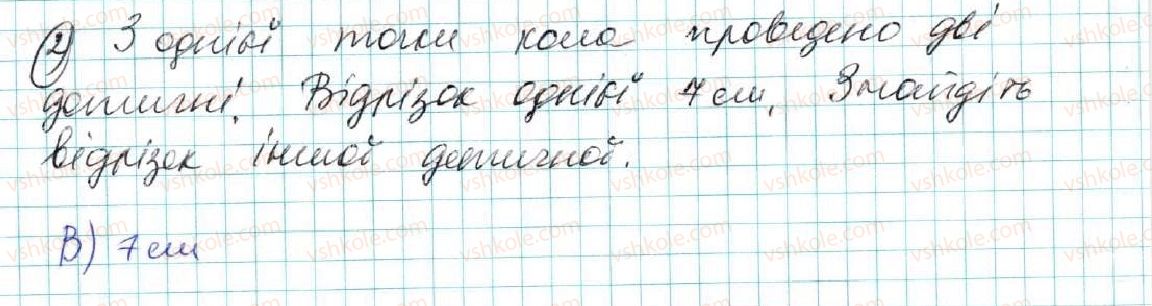 2) З однієї точки кола проведено дві
дотичні. Відрізок однієї 7 см. Знайдіть
відрізок іншої дотичної.
В) 7 см